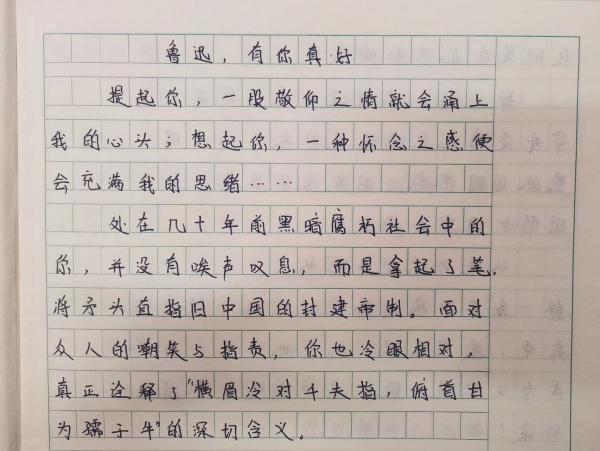 鲁迅，有你真好
提起你，一股敬仰之情就会涌上
我的心头；想起你，一种怀念之感便
会充满我的思绪……
处在几十年前黑暗腐朽社会中的
你，并没有唉声叹息，而是拿起了笔，
将矛头直指旧中国的封建帝制。面对
众人的嘲笑与指责，你也冷眼相对，
真正诠释了“横眉冷对千夫指，俯首甘
为孺子牛”的深切含义。